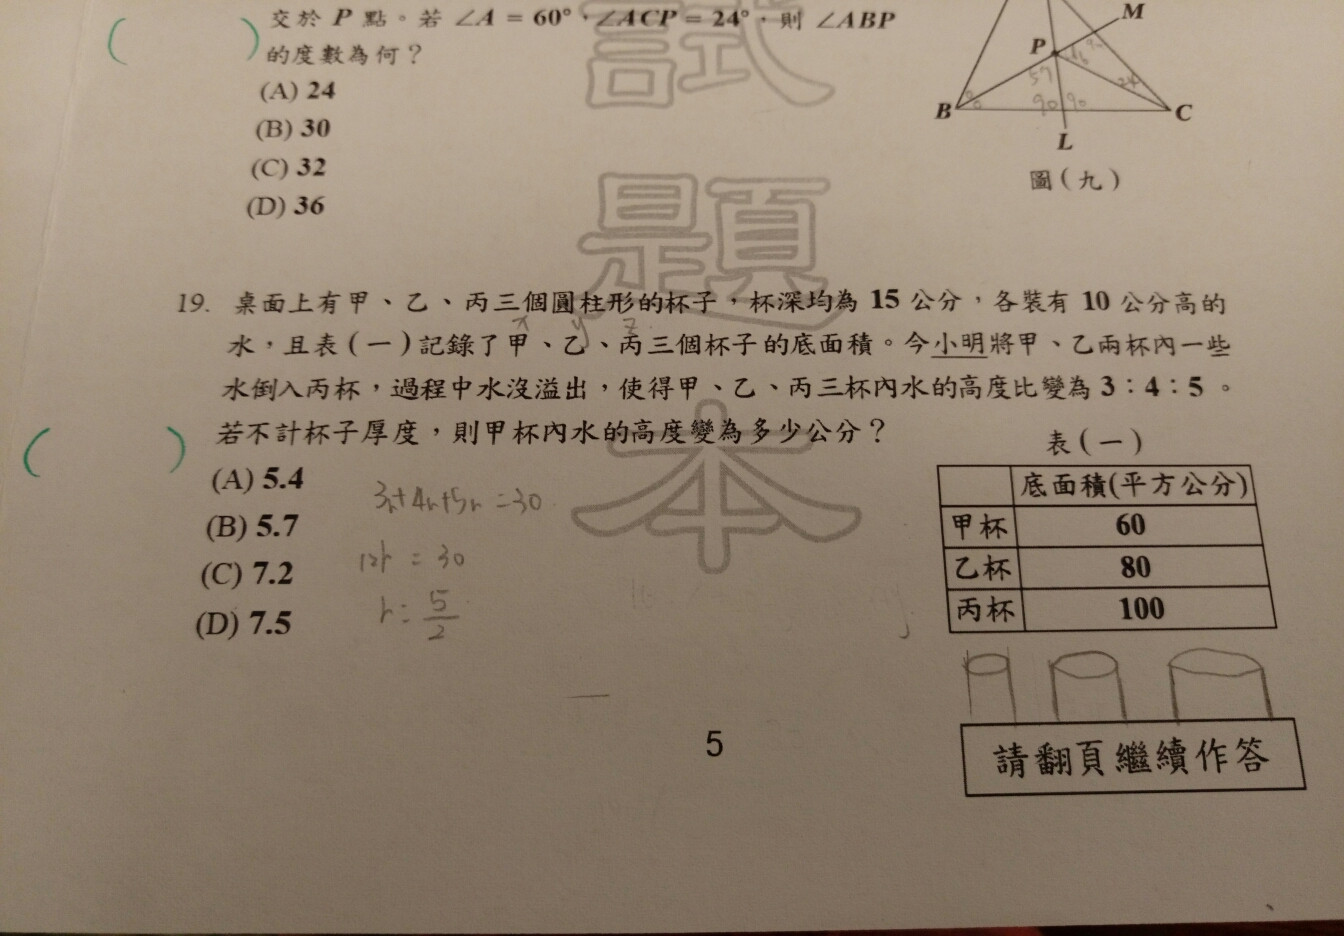 交於 P 點。若 ∠A = 60°,∠ACP = 24°,則 ∠ABP
的度數為何?
(A) 24
(B) 30
(C) 32
(D) 36
M
P
B
C
L
57
24
90 90
圖(九)
試
題
本
19. 桌面上有甲、乙、丙三個圓柱形的杯子,杯深均為 15 公分,各裝有 10 公分高的
x y z
水,且表(一)記錄了甲、乙、丙三個杯子的底面積。今小明將甲、乙兩杯內一些
水倒入丙杯,過程中水沒溢出,使得甲、乙、丙三杯內水的高度比變為 3:4:5。
若不計杯子厚度,則甲杯內水的高度變為多少公分?
(A) 5.4
(B) 5.7
(C) 7.2
(D) 7.5
3r+4r+5r=30
12r = 30
r = 5/2
表(一)
底面積(平方公分)
甲杯 60
乙杯 80
丙杯 100
5
請翻頁繼續作答